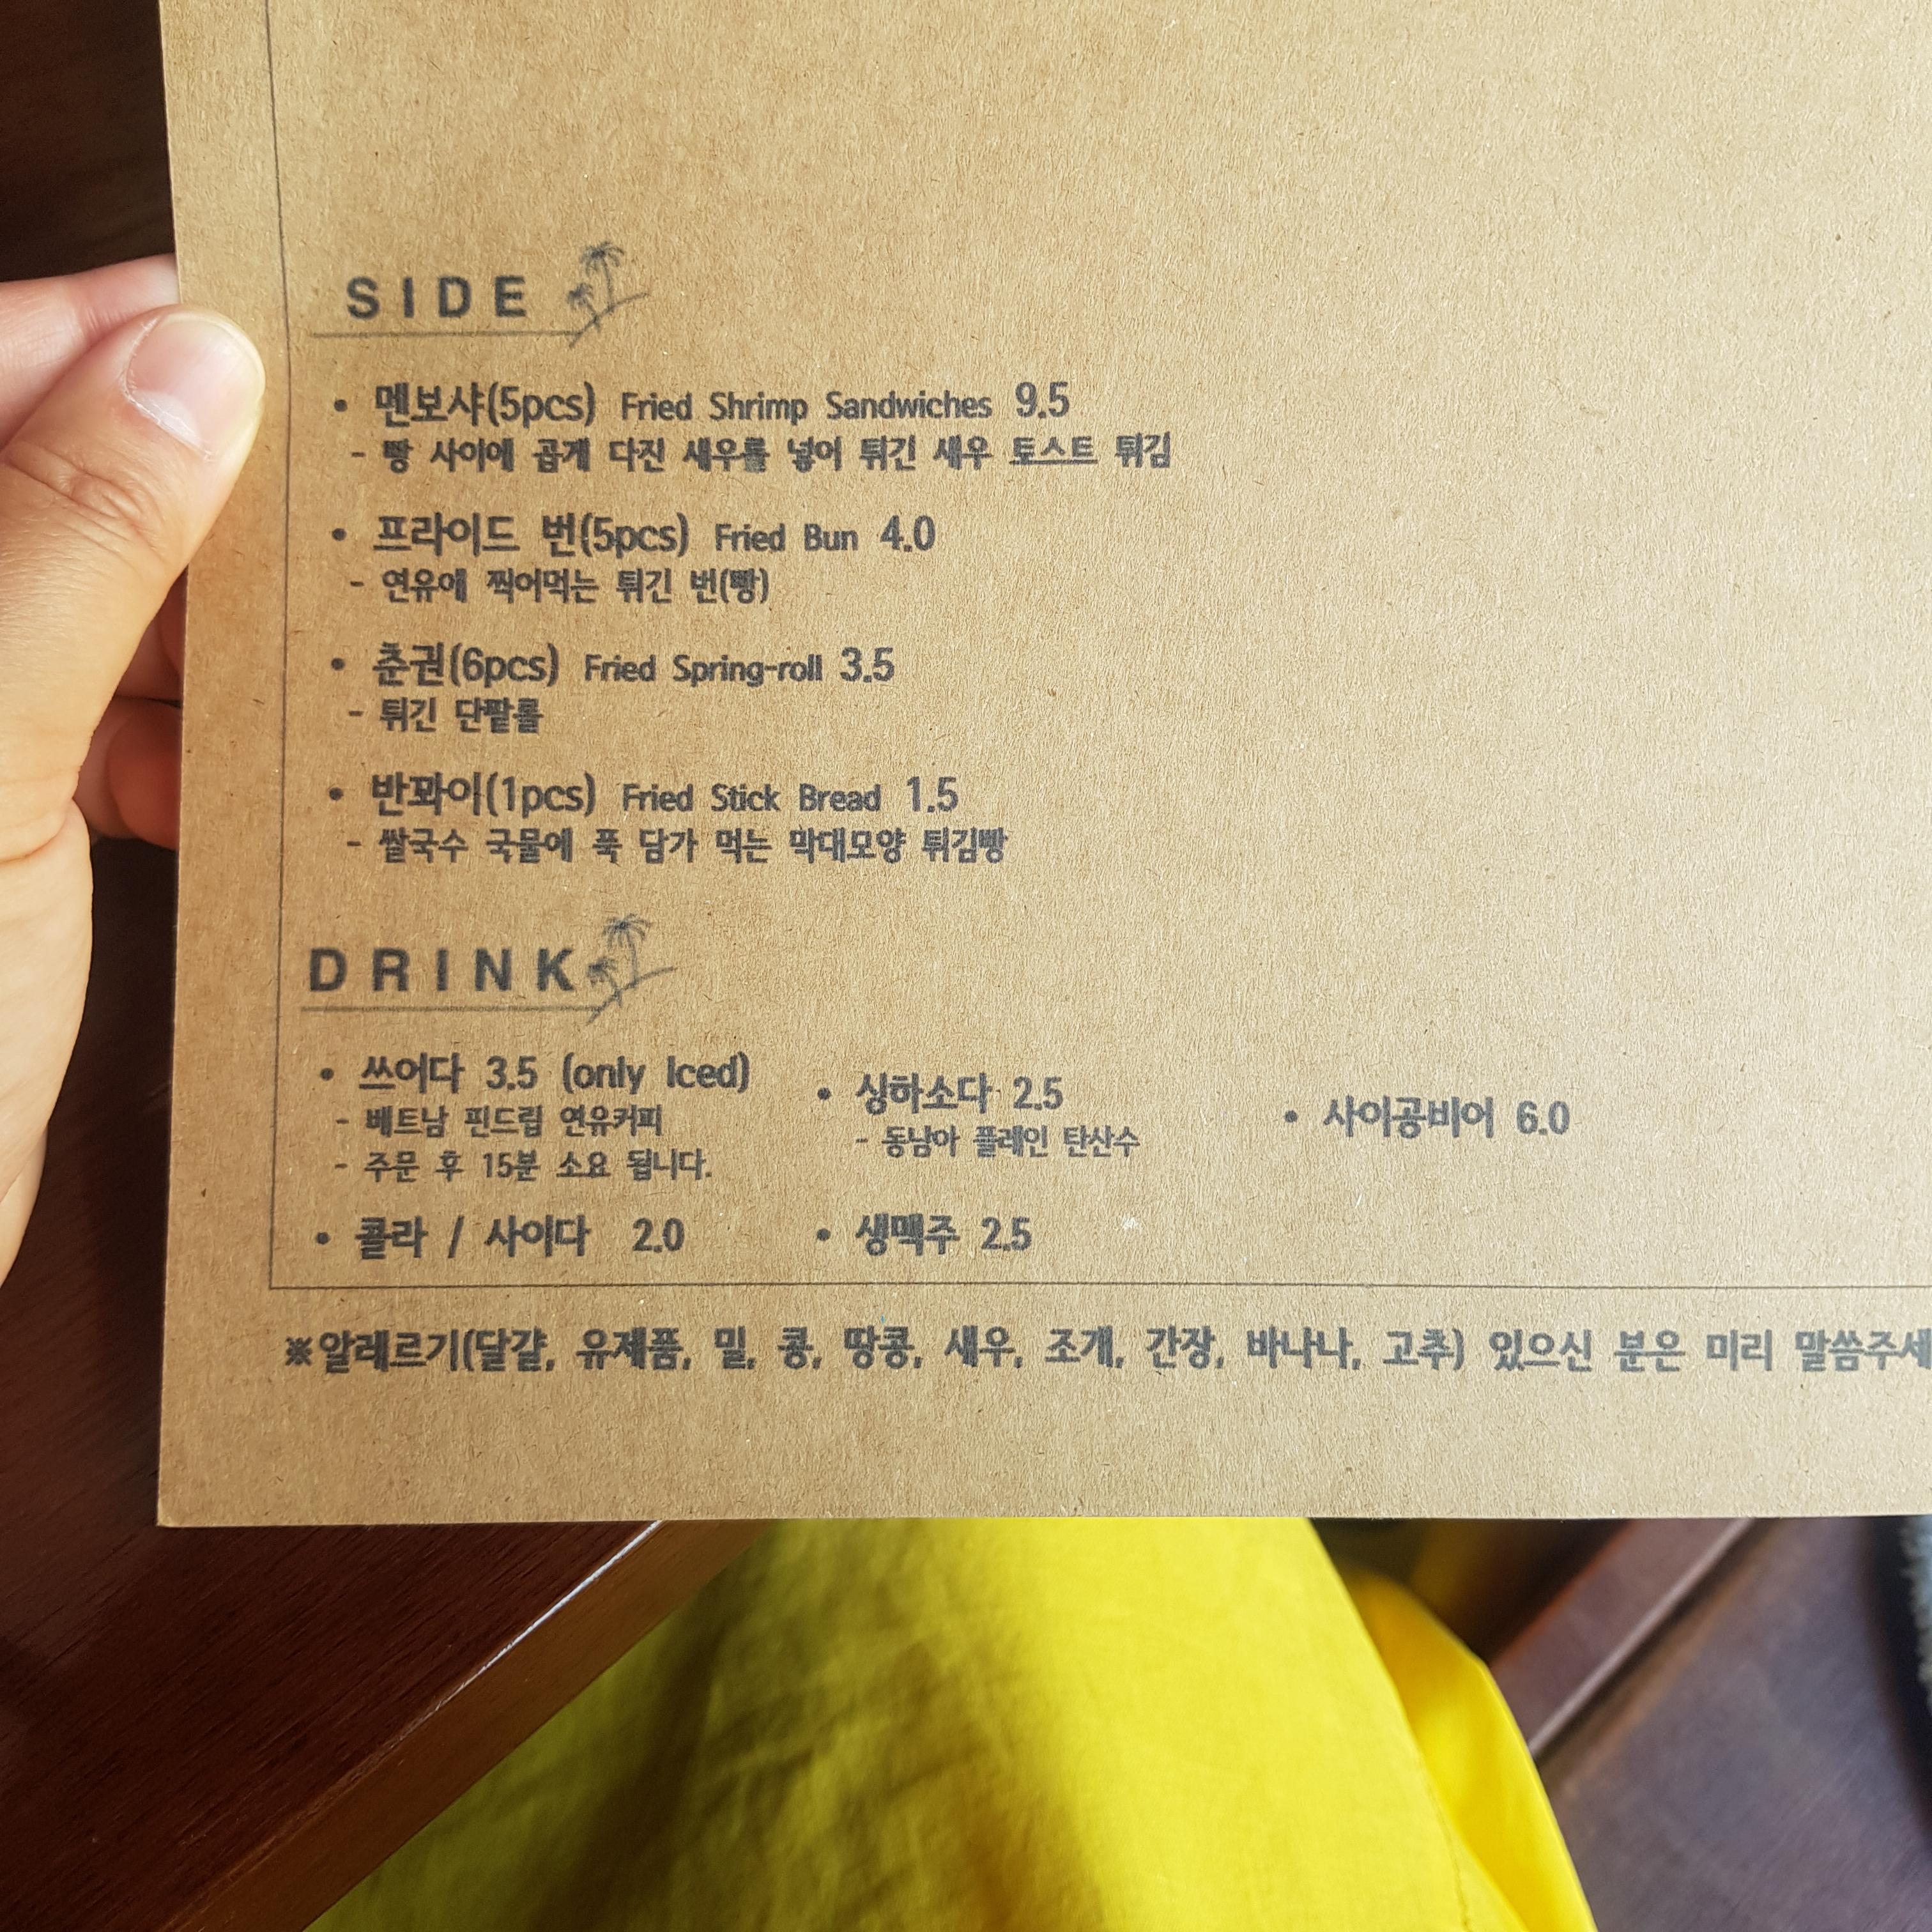 SIDE
• 멘보샤(5pcs) Fried Shrimp Sandwiches 9.5
- 빵 사이에 곱게 다진 새우를 넣어 튀긴 새우 토스트 튀김
• 프라이드 번(5pcs) Fried Bun 4.0
- 연유에 찍어먹는 튀긴 번(빵)
• 춘권(6pcs) Fried Spring-roll 3.5
- 튀긴 단팥롤
• 반꽈이(1pcs) Fried Stick Bread 1.5
- 쌀국수 국물에 푹 담가 먹는 막대모양 튀김빵
DRINK
• 쓰어다 3.5 (only Iced)
- 베트남 핀드립 연유커피
- 주문 후 15분 소요 됩니다.
• 콜라 / 사이다 2.0
• 싱하소다 2.5
- 동남아 플레인 탄산수
• 생맥주 2.5
• 사이공비어 6.0
※알레르기(달걀, 유제품, 밀, 콩, 땅콩, 새우, 조개, 간장, 바나나, 고추) 있으신 분은 미리 말씀주세